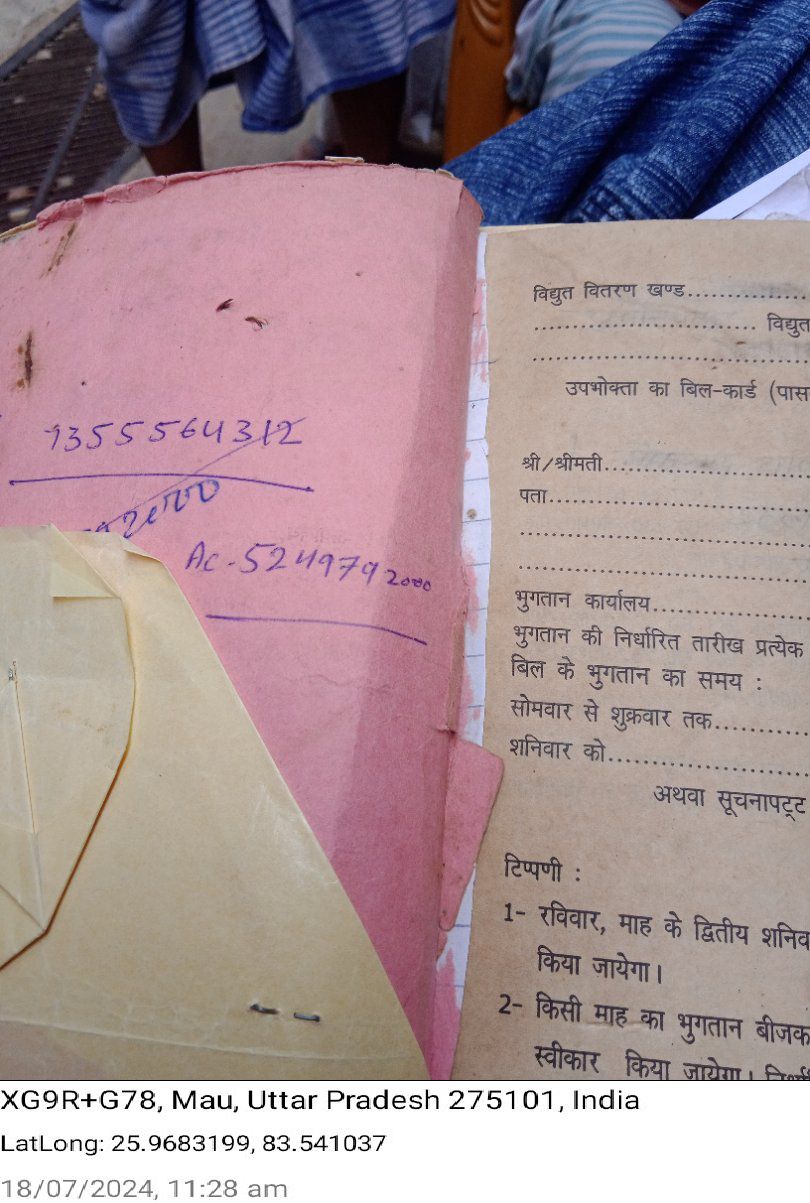 7355564312
Ac - 5249792000
विद्युत वितरण खण्ड..................
.................................. विद्युत
..........................................
उपभोक्ता का बिल-कार्ड (पास
श्री/श्रीमती..............................
पता......................................
..........................................
..........................................
भुगतान कार्यालय......................
भुगतान की निर्धारित तारीख प्रत्येक
बिल के भुगतान का समय :
सोमवार से शुक्रवार तक.............
शनिवार को............................
अथवा सूचनापट्ट
टिप्पणी :
1- रविवार, माह के द्वितीय शनिव
किया जायेगा।
2- किसी माह का भुगतान बीजक
स्वीकार किया जायेगा।
XG9R+G78, Mau, Uttar Pradesh 275101, India
LatLong: 25.9683199, 83.541037
18/07/2024, 11:28 am